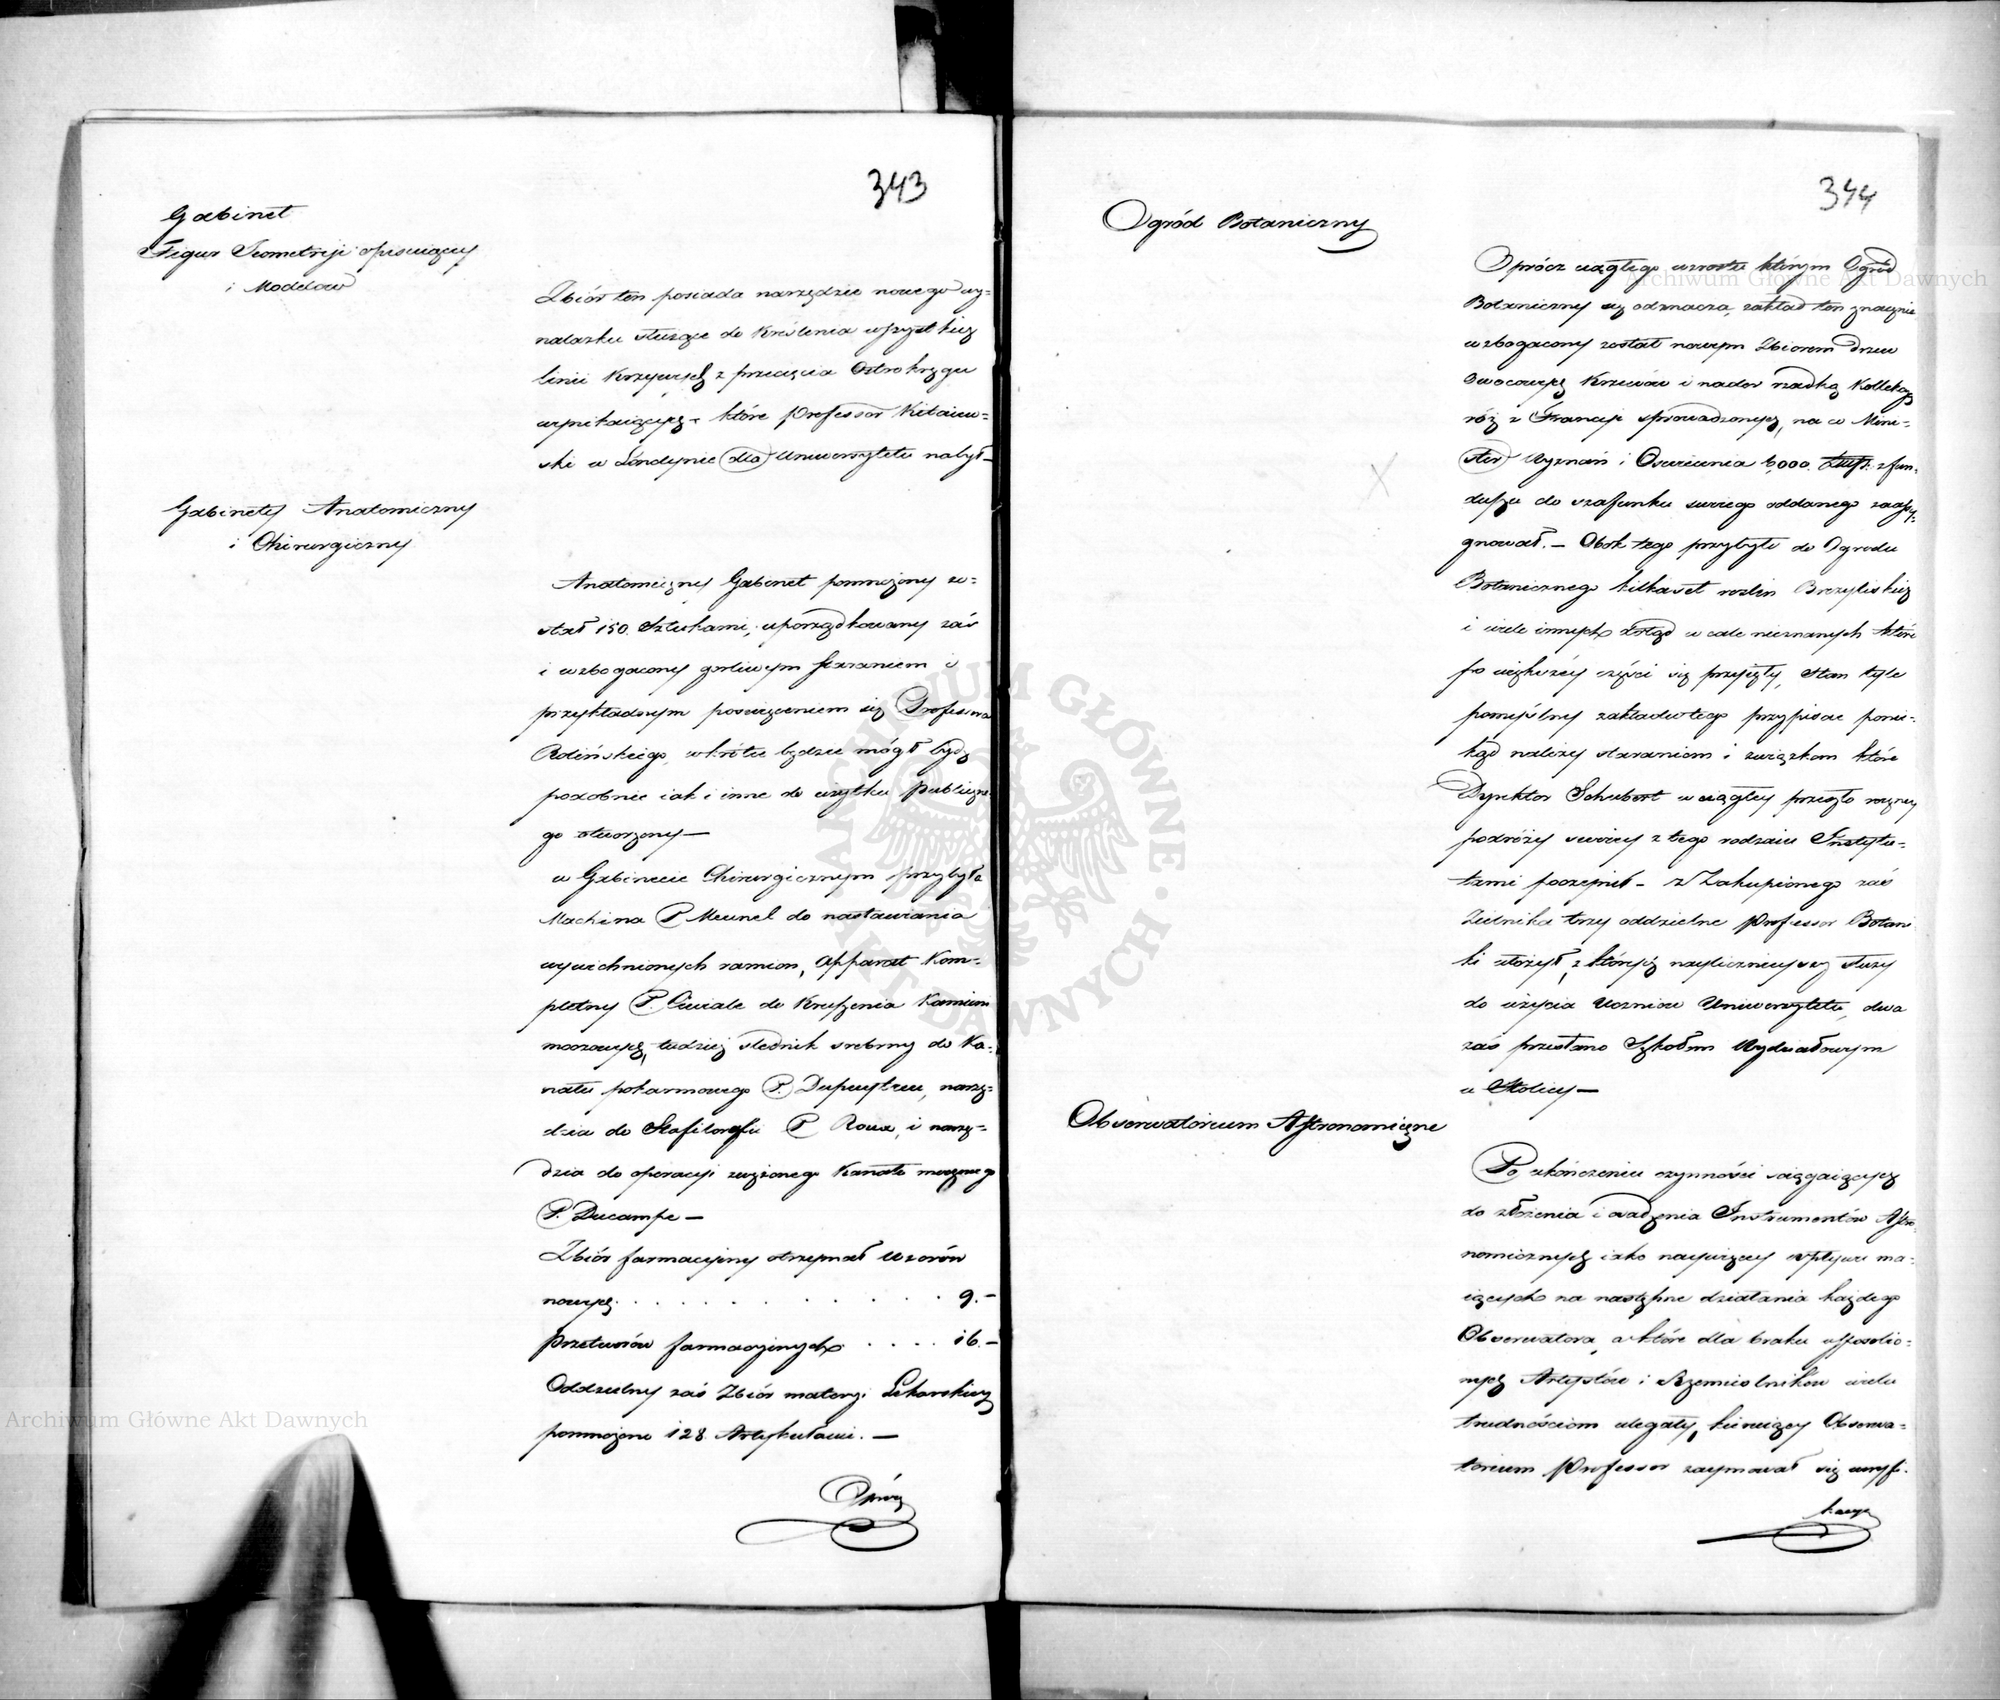 343
Gabinet
Figur Jeometryi opisuiącey
i Modelów
Zbiór ten posiada narzędzie nowego wy-
nalazku służące do kreślenia wszystkich
linii krzywych z przecięcia Ostrokręgu
wynikaiących, które Professor Kitaiew-
ski w Londynie dla Uniwersytetu nabył —
Gabinety Anatomiczny
i Chirurgiczny
Anatomiczny Gabinet pomnożony zo-
stał 150 Sztukami; uporządkowany zaś
i wzbogacony gorliwym staraniem i
przykładnym poswięceniem się Professora
Rolińskiego, wkrótce będzie mógł bydź
podobnie iak i inne do użytku publiczne-
go otworzony —
w Gabinecie Chirurgicznym przybyła
Machina P. Meunel do nastawiania
wywichnionych ramion, Apparat kom-
pletny P. Civiale do kruszenia kamieni
moczowych, tudzież slednik srebrny do Ka-
nału pokarmowego P. Dupuytren, narzę-
dzia do Stafiloraffii P. Roux, i narzę-
dzia do operacyi zwężonego Kanału moczowego
P. Ducampe —
Zbiór farmacyiny otrzymał Wzorów
nowych . . . . . . . . . . 9. —
przetworów farmacyinych . . . . 16. —
Oddzielny zaś Zbiór materyi Lekarskiey
pomnożono 128 Artykułami. —
Oprócz
344
Ogród Botaniczny
Oprócz ciągłego wzrostu którym Ogród
Botaniczny się odznacza, zakład ten znacznie
wzbogacony został nowym Zbiorem drzew
Owocowych Krzewów i nader rzadką Kollekcyą
róż z Francyi sprowadzonych, na co Mini-
ster Wyznań i Oswiecenia 6,000 z fun-
duszu do szafunku swego oddanego zaassy-
gnował. — Obok tego przybyło do Ogrodu
Botanicznego kilkaset roslin Brezyliskich
i wiele innych zkąd w cale nieznanych które
po większéy części się przyięły, Stan tyle
pomyślny zakładu tego przypisać ponie-
kąd należy staraniom i związkom które
Dyrektor Schubert w ciągłey przeszło roczney
podróży swoiey z tego rodzaiu Instytu-
tami poczynił — z Zakupionego zaś
Zielnika trzy oddzielne Professor Botani
ki ułożył, z których naylicznieyszy służy
do użycia Uczniów Uniwersytetu, dwa
zaś przesłano Szkołom Wydziałowym
w Stolicy —
Observatorium Astronomiczne
Po ukończeniu czynności sciągaiących
do złożenia i osadzenia Instrumentów Astro
nomicznych iako naywiększy wpływ ma-
iących na następne działania każdego
Observatora, a które dla braku usposobio-
nych Artystów i Rzemieslników wielu
trudnościom ulegały, kieruiący Observa-
torium Professor zaymował się wysz.
Archiwum Główne Akt Dawnych
Archiwum Główne Akt Dawnych
ARCHIWUM GŁÓWNE AKT DAWNYCH